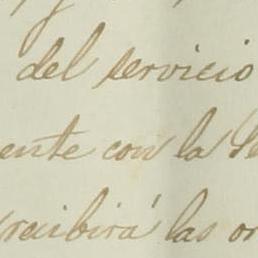 del servicio
ente con la
recibirá las